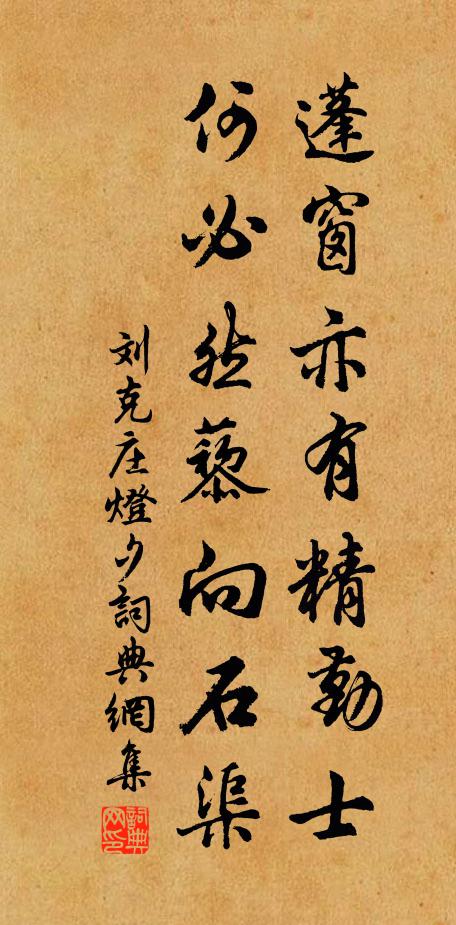 蓬窗亦有精勤士
何必然藜向石渠
刘克庄燈夕詞典網集
詞典网印